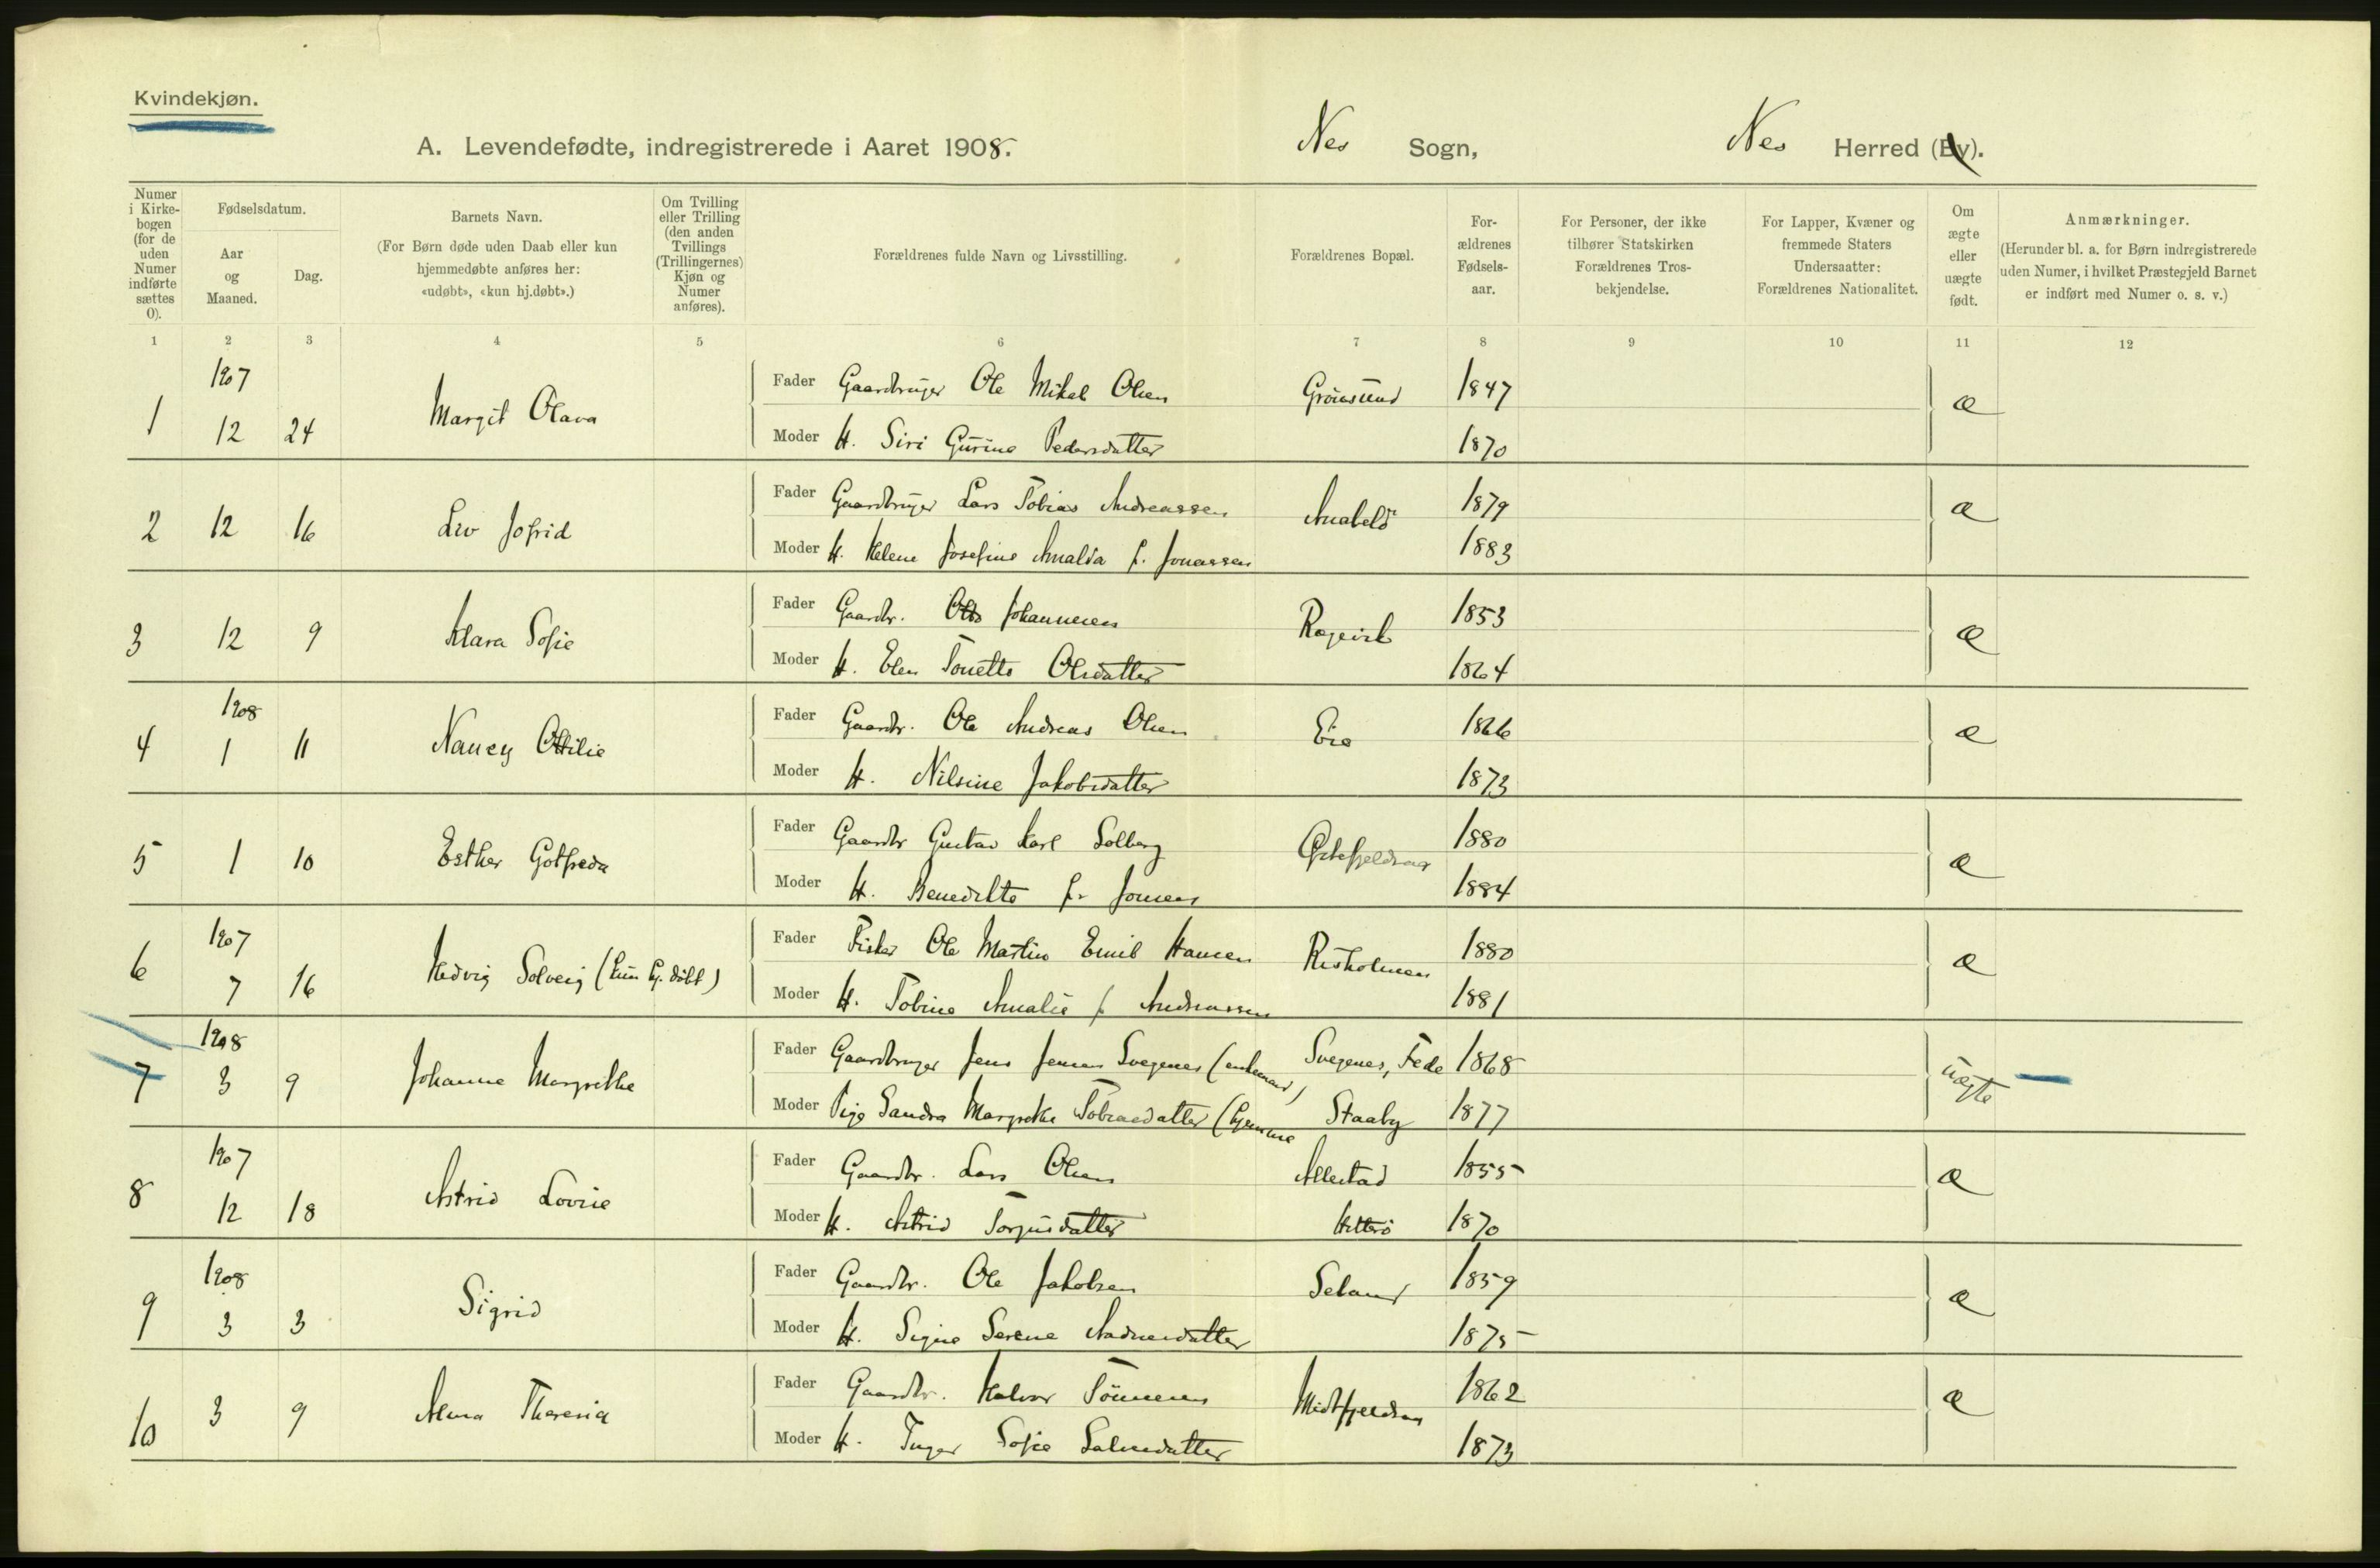 Kvindekjøn.
A. Levendefødte, indregistrerede i Aaret 1908. Nes Sogn, Nes Herred (By).
Numer i Kirkebogen (for de uden Numer indførte sættes 0).
Fødselsdatum.
Aar og Maaned.
Dag.
Barnets Navn.
(For Børn døde uden Daab eller kun hjemmedøbte anføres her: «udøbt», «kun hj.døbt».)
Om Tvilling eller Trilling (den anden Tvillings (Trillingernes) Kjøn og Numer anføres).
Forældrenes fulde Navn og Livsstilling.
Forældrenes Bopæl.
For-ældrenes Fødsels-aar.
For Personer, der ikke tilhører Statskirken Forældrenes Tros-bekjendelse.
For Lapper, Kvæner og fremmede Staters Undersaatter: Forældrenes Nationalitet.
Om ægte eller uægte født.
Anmærkninger.
(Herunder bl. a. for Børn indregistrerede uden Numer, i hvilket Præstegjeld Barnet er indført med Numer o. s. v.)
1 2 3 4 5 6 7 8 9 10 11 12
1907
1 12 24 Margit Olava
Fader Gaardbruger Ole Mikal Olsen 1847 æ
Moder H. Siri Gurine Pedersdatter 1870
2 12 16 Liv Jofrid
Fader Gaardbruger Lars Tobias Andreassen Anabelö 1879 æ
Moder H. Helene Josefine Amalda f. Jonassen 1883
3 12 9 Klara Sofie
Fader Gaardbr. Johannesen 1853 æ
Moder H. Elen Tonette Olsdatter 1864
1908
4 1 11 Nancy Ottilie
Fader Gaardbr. Ole Andreas Olsen Eie 1866 æ
Moder H. Nilsine Jakobsdatter 1873
5 1 10 Esther Gotfreda
Fader Gaardbr Gustav Karl Solberg 1880 æ
Moder H. Benedikte f. Jonsen 1884
1907
6 7 16 Hedvig Solveig (kun hj. døbt)
Fader Fisker Ole Martin Emil Hansen Risholmen 1880 æ
Moder H. Tobine Amalie f Andreassen 1881
1908
7 3 9 Johanne Margrethe
Fader Gaardbruger Jens Jensen Svegenes (enkemand) Svegenes, Fede 1868 uægte
Moder Pige Sandra Margrethe Tobiasdatter (hjemme Staaby 1877
1907
8 12 18 Astrid Lovise
Fader Gaardbr. Lars Olsen Allestad 1855 æ
Moder H. Astrid Torjusdatter Hitterö 1870
1908
9 3 3 Sigrid
Fader Gaardbr. Ole Jakobsen Seland 1859 æ
Moder H. Signe Serene Aadnesdatter 1875
10 3 9 Alma Theresia
Fader Gaardbr. Halvor Tönnesen Midtfjeldsaa 1862 æ
Moder H. Inger Sofie Salvesdatter 1873